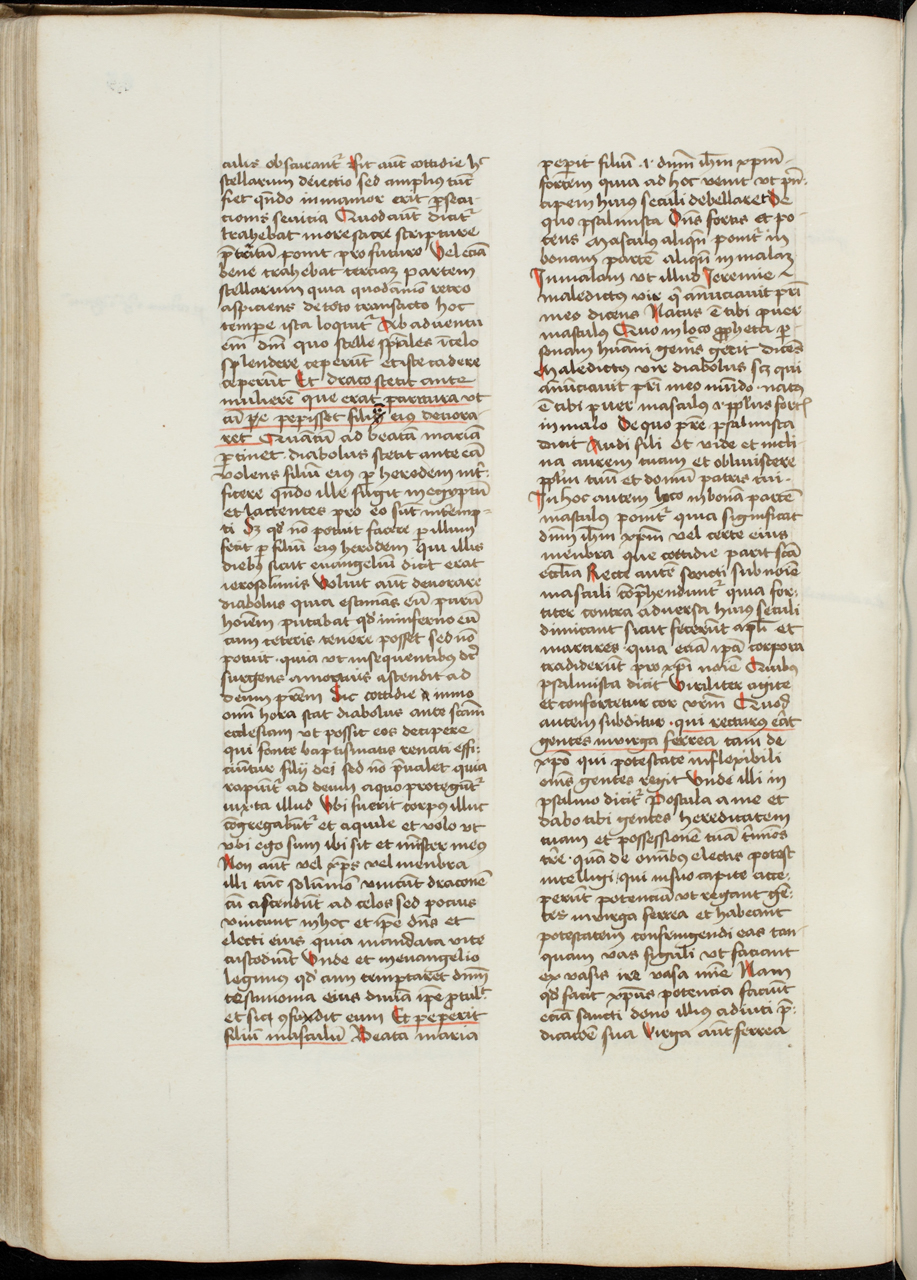 culis obscurant᷑ Fit aūt cottidie hͨ
stellarum deiectio sed amplius tūc
fiet qn̄do inmaior erit ꝑsecu
tionis seuicia Quod aūt dicit᷑
trahebat more sacre scripture
p̄t̄itū ponit pro futuro Vel eciā
bene trahebat terciaꝫ partem
stellarum quia quodāmō retro
aspiciens de toto transacto hoc
tempe ista loquit᷑ Ab aduentu
em̄ dn̄i quo stelle sp̄iales ī celo
splendere ceperūt et iste cadere
ceperūt Et draco stetit ante
mulierē que erat paritura vt
cū pepisset filiū eius deuora
ret Quātū ad beatā mariā
ꝑtinet diabolus stetit ante eā
volens filium eius ꝑ herodem int̄
ficere qn̄do ille fugit in egyptū
et lactentes pro eo sūt intemp
ti Sꝫ qd̓ nō potuit facere ꝑ illum
fecit ꝑ filiū eius herodem qui illis
diebꝫ sicut euangeliū dicit erat
ierosolimis Voluit aūt deuorare
diabolus quia estimās eū purū
hoīem putabat qd̓ in inferno eū
cum ceteris tenere posset sed nō
potuit quia vt insequentibus dr̄
surgens a mortuis ascendit ad
deum p̄rem Sic cottidie ⁊ inmo
om̄i hora stat diabolus ante scām
ecclesiam vt possit eos decipere
qui fonte baptismatis renati effi
ciūtur filij dei sed nō p̄ualet quia
rapiūt᷑ ad deum a quo protegūt᷑
iuxta illud Vbi fuerit corpus illuc
cōgregabūt᷑ et aquile et volo vt
vbi ego sum ibi sit et minister meus
Non aūt vel xp̄s vel membra
illi tūc solūmō vincūt draconē
cū ascendūt ad celos sed pocius
vincunt in hoc et ip̄e dn̄s et
electi eius quia mandata vite
custodiūt Vnde et in euangelio
legimus qd̓ cum temptaret dn̄m
testimonia eius diuīa ip̄e ꝓtulit
et sict ꝯfudit eum Et peperit
filiū masculū Beata maria
peperit filiū .i. dn̄m ih̄m xp̄m
fortem quia ad hoc venit vt p̄n
cipem huius seculi debellaret De
quo psalmista Dn̄s fortis et po
tens Masculus aliqn̄ ponit᷑ in
bonam partē aliqn̄ in malaꝫ
In malam vt illud Jeremie
maledictus vir q̄ annūciauit pr̄i
meo dicens Natus ē tibi puer
masculus Quo in loco ꝓpheta ꝑ
sonam hūani gen̄is gerit dicēs
Maledictus vir diabolus scꝫ qui
annūciauit pr̄i meo mūdo natus
ē tibi puer masculus .i. ppl̄us fort
in malo De quo pr̄e psalmista
dicit Audi fili et vide et incli
na aurem tuam et obliuiscere
ppl̄m tuū et domū patris tui
In hoc autem loco in bonā partē
masculus ponit᷑ quia significat
dn̄m ih̄m xp̄m vel certe eius
membra que cottidie parit scā
eccl̄ia Recte autē sancti sub noīe
masculi cōp̄hendunt᷑ quia for
titer contra aduersa huius seculi
dimicant sicut fecerūt apl̄i et
martires quia eciā ip̄a corpora
tradiderūt pro xp̄i noīe Quibꝫ
psalmista dicit Viriliter agite
et confortetur cor vr̄m Quod
autem subditur qui recturus erat
gentes in virga ferrea tam de
xp̄o qui potestate inflexibili
om̄s gentes regit Vnde illi in
psalmo dicit᷑ Postula a me et
dabo tibi gentes hereditatem
tuam et possessionē tuā t̄minos
tr̄e quā de om̄ibus electis potest
intelligi qui in suo capite acce
perūt potenciā vt regant gē
tes in virga ferrea et habeant
potestatem confringendi eas tan
quam vas figuli vt faciant
ex vasis ire vasa mīe Nam
qd̓ facit xp̄us potencia faciūt
eciā sancti dono illius adiuti p̄
dicacōe sua Virga aūt ferrea